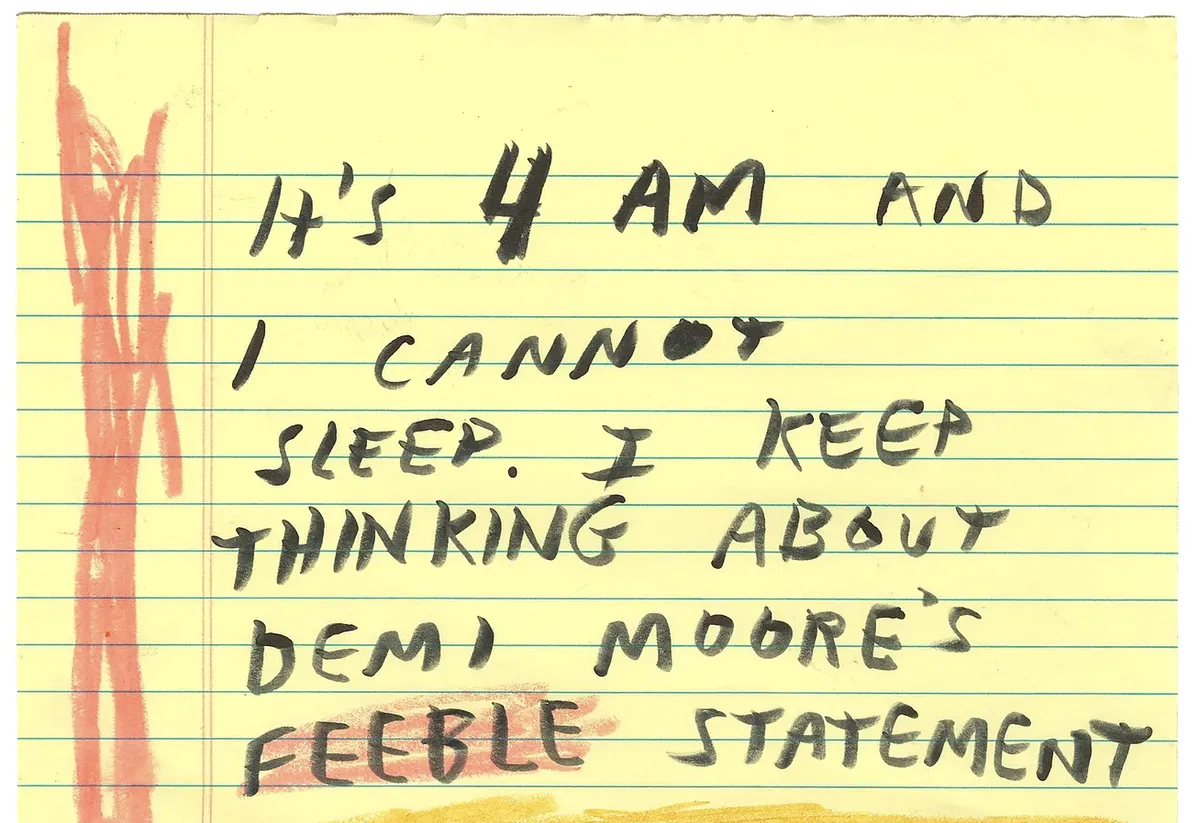 IT'S 4 AM AND
I CANNOT
SLEEP. I KEEP
THINKING ABOUT
DEMI MOORE'S
FEEBLE STATEMENT